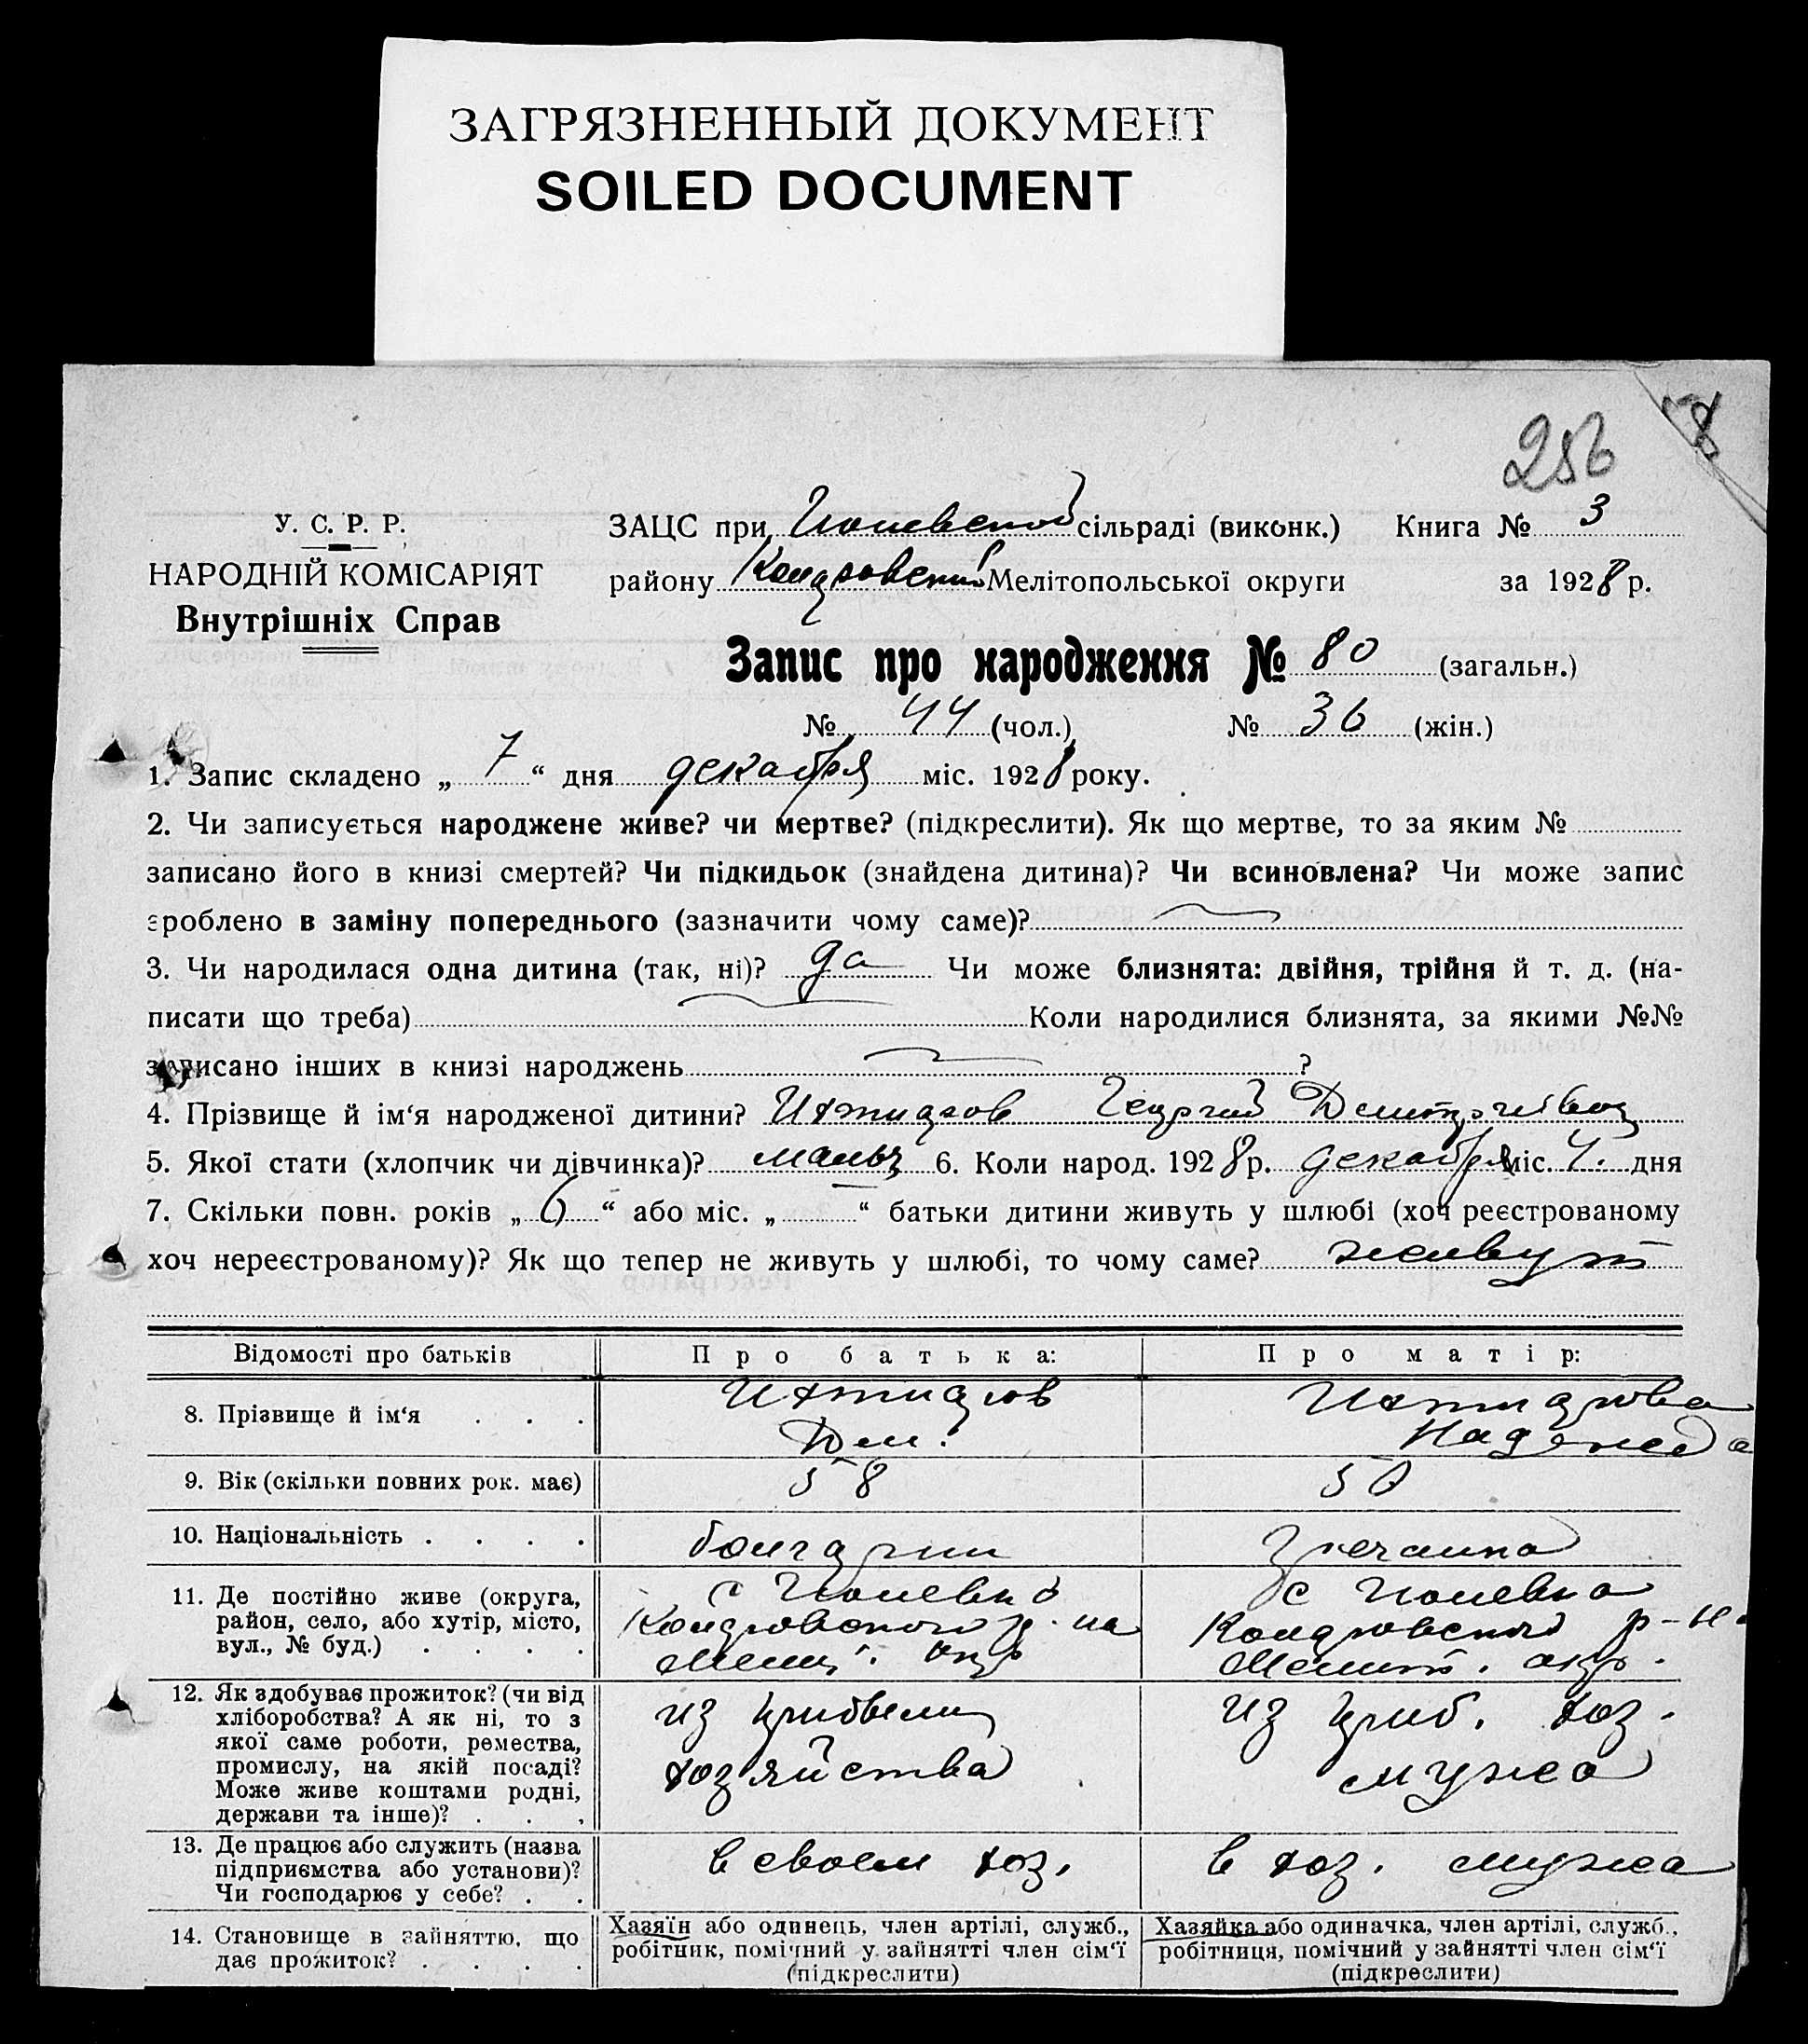 ЗАГРЯЗНЕННЫЙ ДОКУМЕНТ
SOILED DOCUMENT
256
У. С. Р. Р.
НАРОДНІЙ КОМІСАРІЯТ
Внутрішніх Справ
ЗАЦС при сільраді (виконк.) Книга № 3
району Мелітопольської округи за 1928 р.
Запис про народження № 80 (загальн.)
№ 44 (чол.) № 36 (жін.)
1. Запис складено „ 7 “ дня декабря міс. 1928 року.
2. Чи записується народжене живе? чи мертве? (підкреслити). Як що мертве, то за яким №
записано його в книзі смертей? Чи підкидьок (знайдена дитина)? Чи всиновлена? Чи може запис
зроблено в заміну попереднього (зазначити чому саме)?
3. Чи народилася одна дитина (так, ні)? да Чи може близнята: двійня, трійня й т. д. (на-
писати що треба) Коли народилися близнята, за якими №№
записано інших в книзі народжень ?
4. Прізвище й ім‘я народженої дитини? Георгий
5. Якої стати (хлопчик чи дівчинка)? мальч 6. Коли народ. 1928 р. декабря міс. 4. дня
7. Скільки повн. років „ 6 “ або міс. „ “ батьки дитини живуть у шлюбі (хоч реєстрованому
хоч нереєстрованому)? Як що тепер не живуть у шлюбі, то чому саме? живут
Відомості про батьків Про батька: Про матір:
8. Прізвище й ім‘я . . .
Дм. Надежда
9. Вік (скільки повних рок. має) 58 50
10. Національність . . . . болгарин гречанка
11. Де постійно живе (округа,
район, село, або хутір, місто,
вул., № буд.) . . . .
с с
р-на р-на
Мелит. окр Мелит. окр.
12. Як здобуває прожиток? (чи від
хліборобства? А як ні, то з
якої саме роботи, ремества,
промислу, на якій посаді?
Може живе коштами родні,
держави та інше)? . . .
из из хоз.
хозяйства мужа
13. Де працює або служить (назва
підприємства або установи)?
Чи господарює у себе? . .
в своем хоз. в хоз. мужа
14. Становище в зайняттю, що
дає прожиток? . . . .
Хазяїн або одинець, член артілі, служб.,
робітник, помічний у зайнятті член сім‘ї
(підкреслити)
Хазяйка або одиначка, член артілі, служб.,
робітниця, помічний у зайнятті член сім‘ї
(підкреслити)